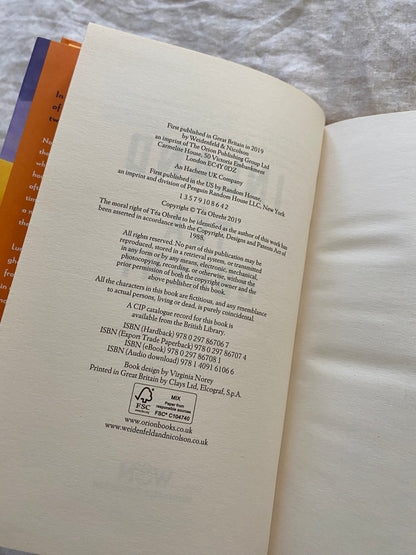 First published in Great Britain in 2019
by Weidenfeld & Nicolson
an imprint of The Orion Publishing Group Ltd
Carmelite House, 50 Victoria Embankment
London EC4Y 0DZ
An Hachette UK Company
First published in the US by Random House,
an imprint and division of Penguin Random House LLC, New York
1 3 5 7 9 10 8 6 4 2
Copyright © Téa Obreht 2019
The moral right of Téa Obreht to be identified as the author of this work has
been asserted in accordance with the Copyright, Designs and Patents Act of
1988.
All rights reserved. No part of this publication may be
reproduced, stored in a retrieval system, or transmitted
in any form or by any means, electronic, mechanical,
photocopying, recording, or otherwise, without the
prior permission of both the copyright owner and the
above publisher of this book.
All the characters in this book are fictitious, and any resemblance
to actual persons, living or dead, is purely coincidental.
A CIP catalogue record for this book is
available from the British Library.
ISBN (Hardback) 978 0 297 86706 7
ISBN (Export Trade Paperback) 978 0 297 86707 4
ISBN (eBook) 978 0 297 86708 1
ISBN (Audio download) 978 1 4091 6106 6
Book design by Virginia Norey
Printed in Great Britain by Clays Ltd, Elcograf, S.p.A.
FSC
www.fsc.org
MIX
Paper from
responsible sources
FSC® C104740
www.orionbooks.co.uk
www.weidenfeldandnicolson.co.uk